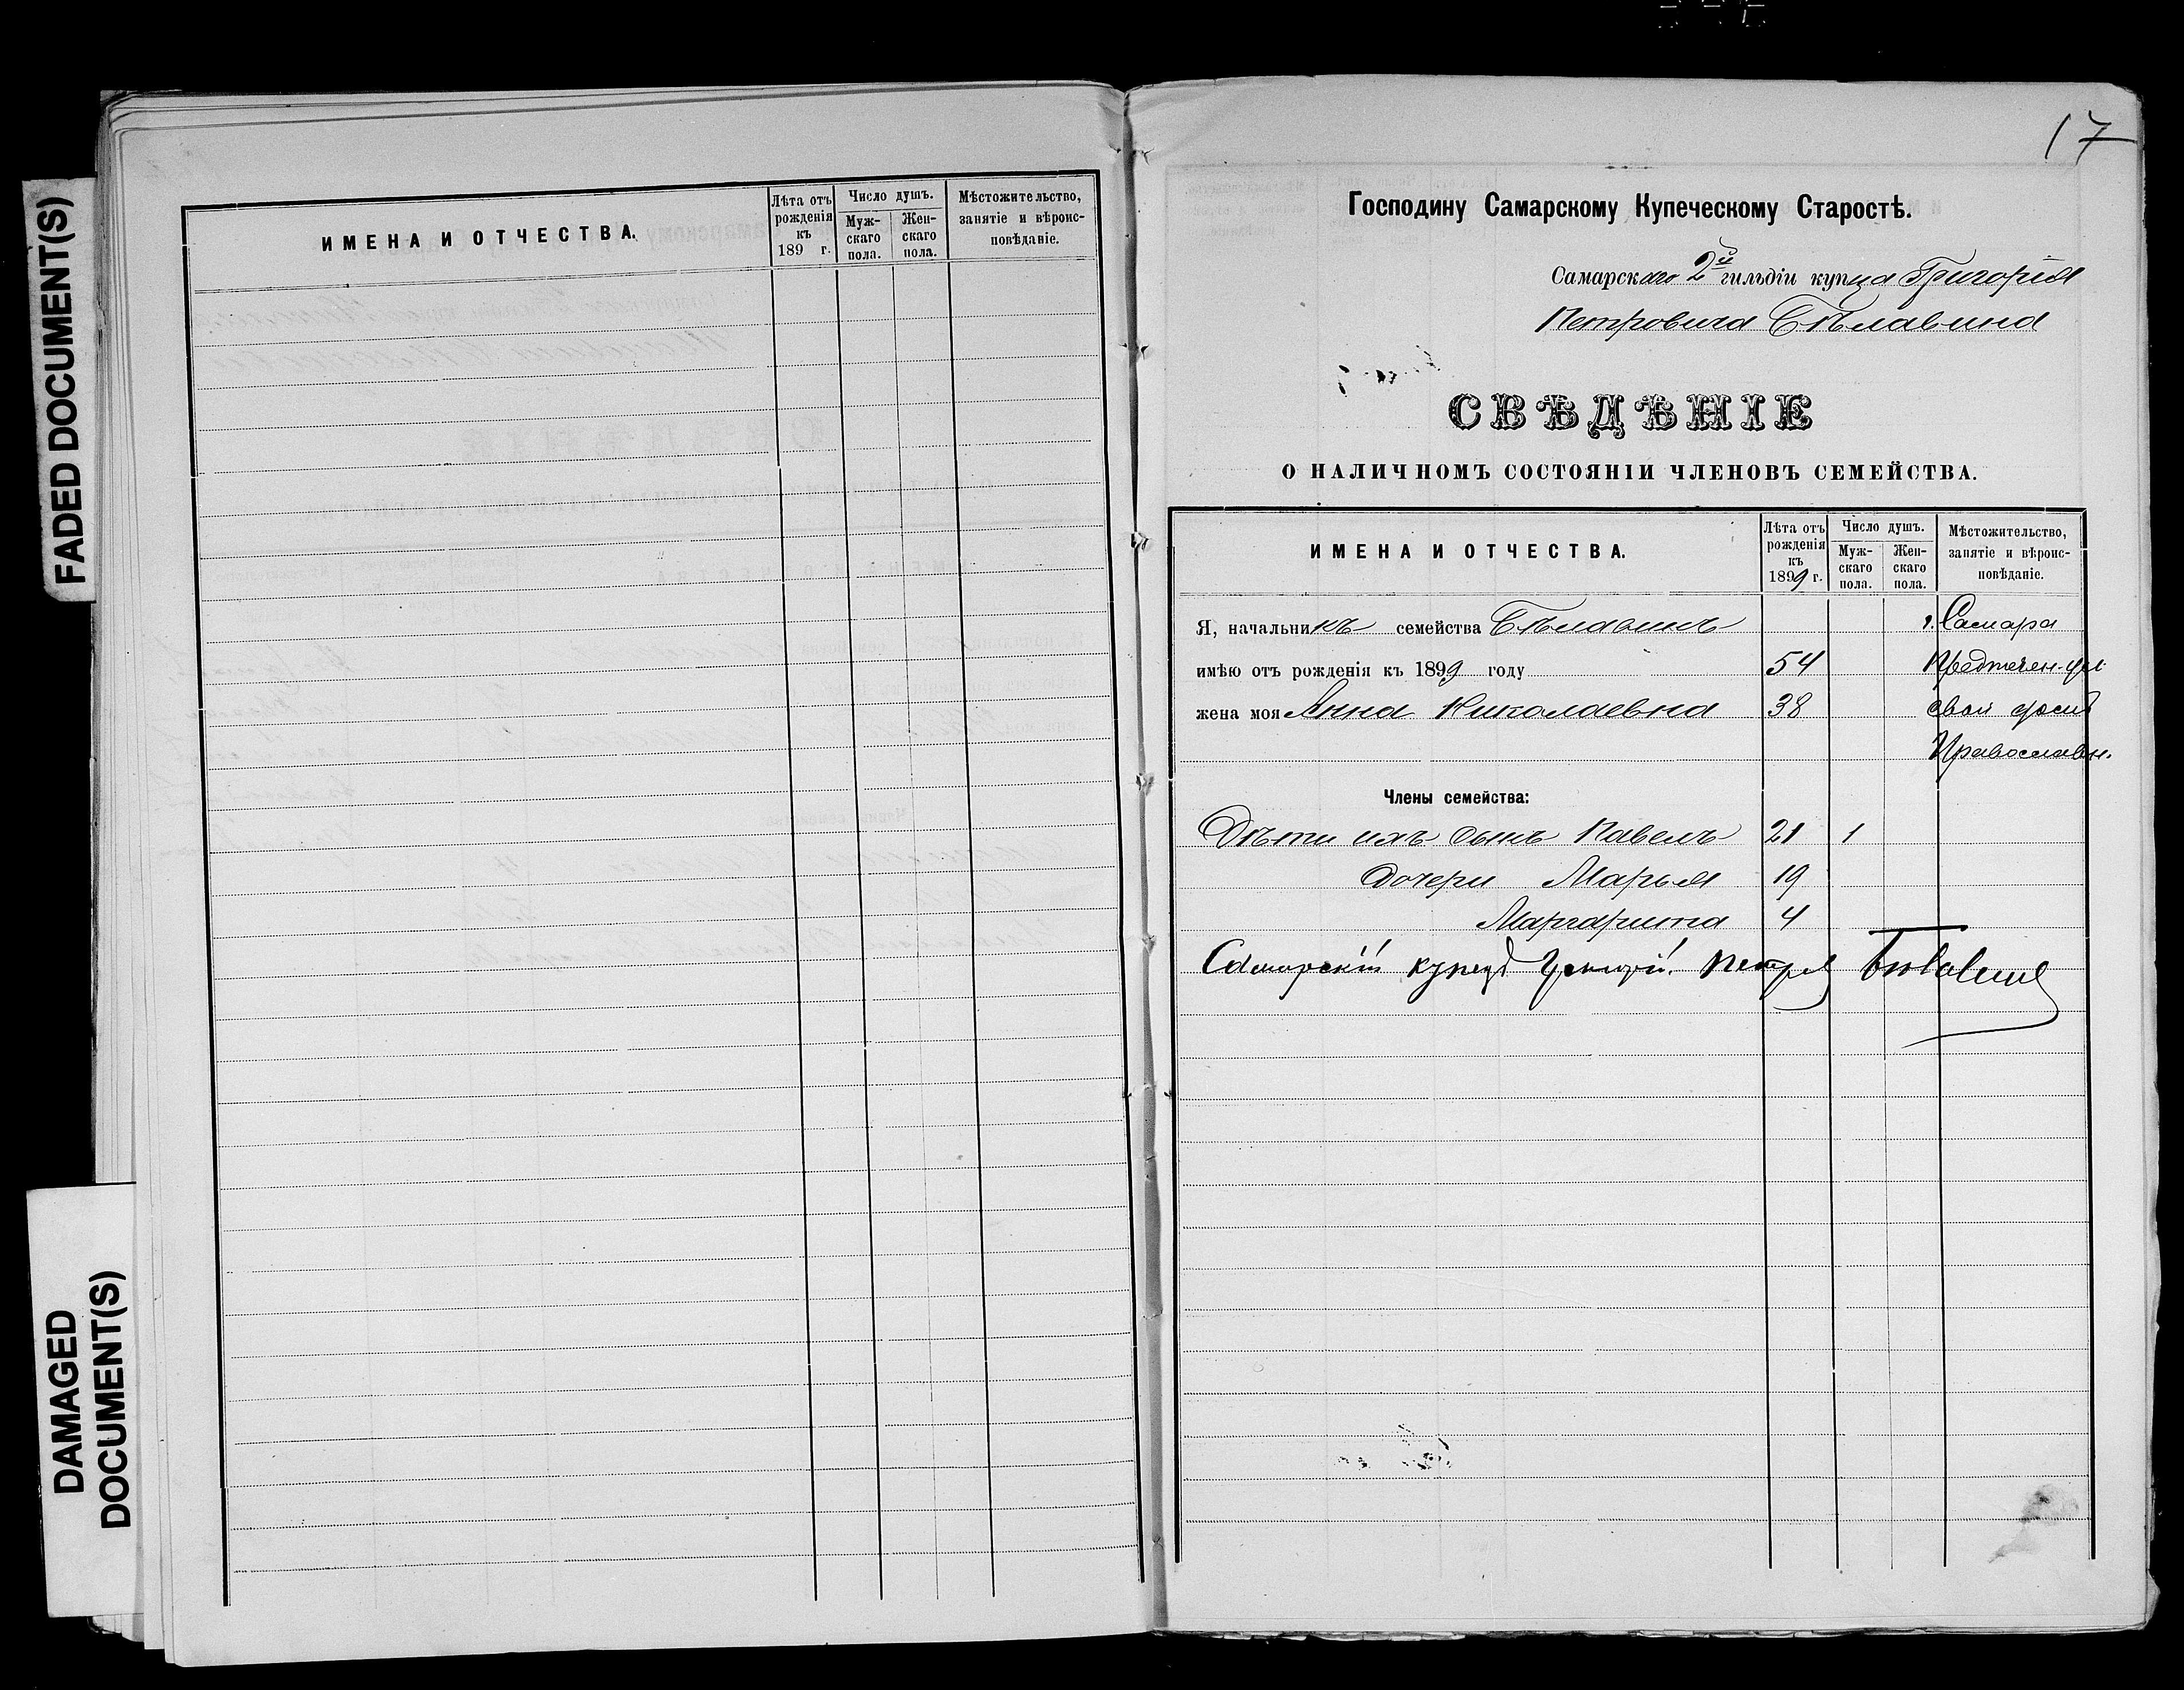 FADED DOCUMENT(S)
DAMAGED
DOCUMENT(S)
ИМЕНА И ОТЧЕСТВА.
Лѣта отъ
рожденія
къ
189 г.
Число душъ.
Муж-
скаго
пола.
Жен-
скаго
пола.
Мѣстожительство,
занятіе и вѣроис-
повѣданіе.
17
Господину Самарскому Купеческому Старостѣ.
Самарскаго 2й гильдіи купца Григорія
Петровича Бѣлавина
СВѢДѢНІЕ
О НАЛИЧНОМЪ СОСТОЯНІИ ЧЛЕНОВЪ СЕМЕЙСТВА.
ИМЕНА И ОТЧЕСТВА.
Лѣта отъ
рожденія
къ
1899 г.
Число душъ.
Муж-
скаго
пола.
Жен-
скаго
пола.
Мѣстожительство,
занятіе и вѣроис-
повѣданіе.
Я, начальникъ семейства Бѣлавинъ г. Самара
имѣю отъ рожденія къ 1899 году 54 Предтечен. ул.
жена моя Анна Николаевна 38 свой домъ
Православн.
Члены семейства:
Дѣти ихъ сынъ Павелъ 21 1
Дочери Марья 19
Маргарита 4
Самарскій купецъ Григорій Петров Бѣлавинъ